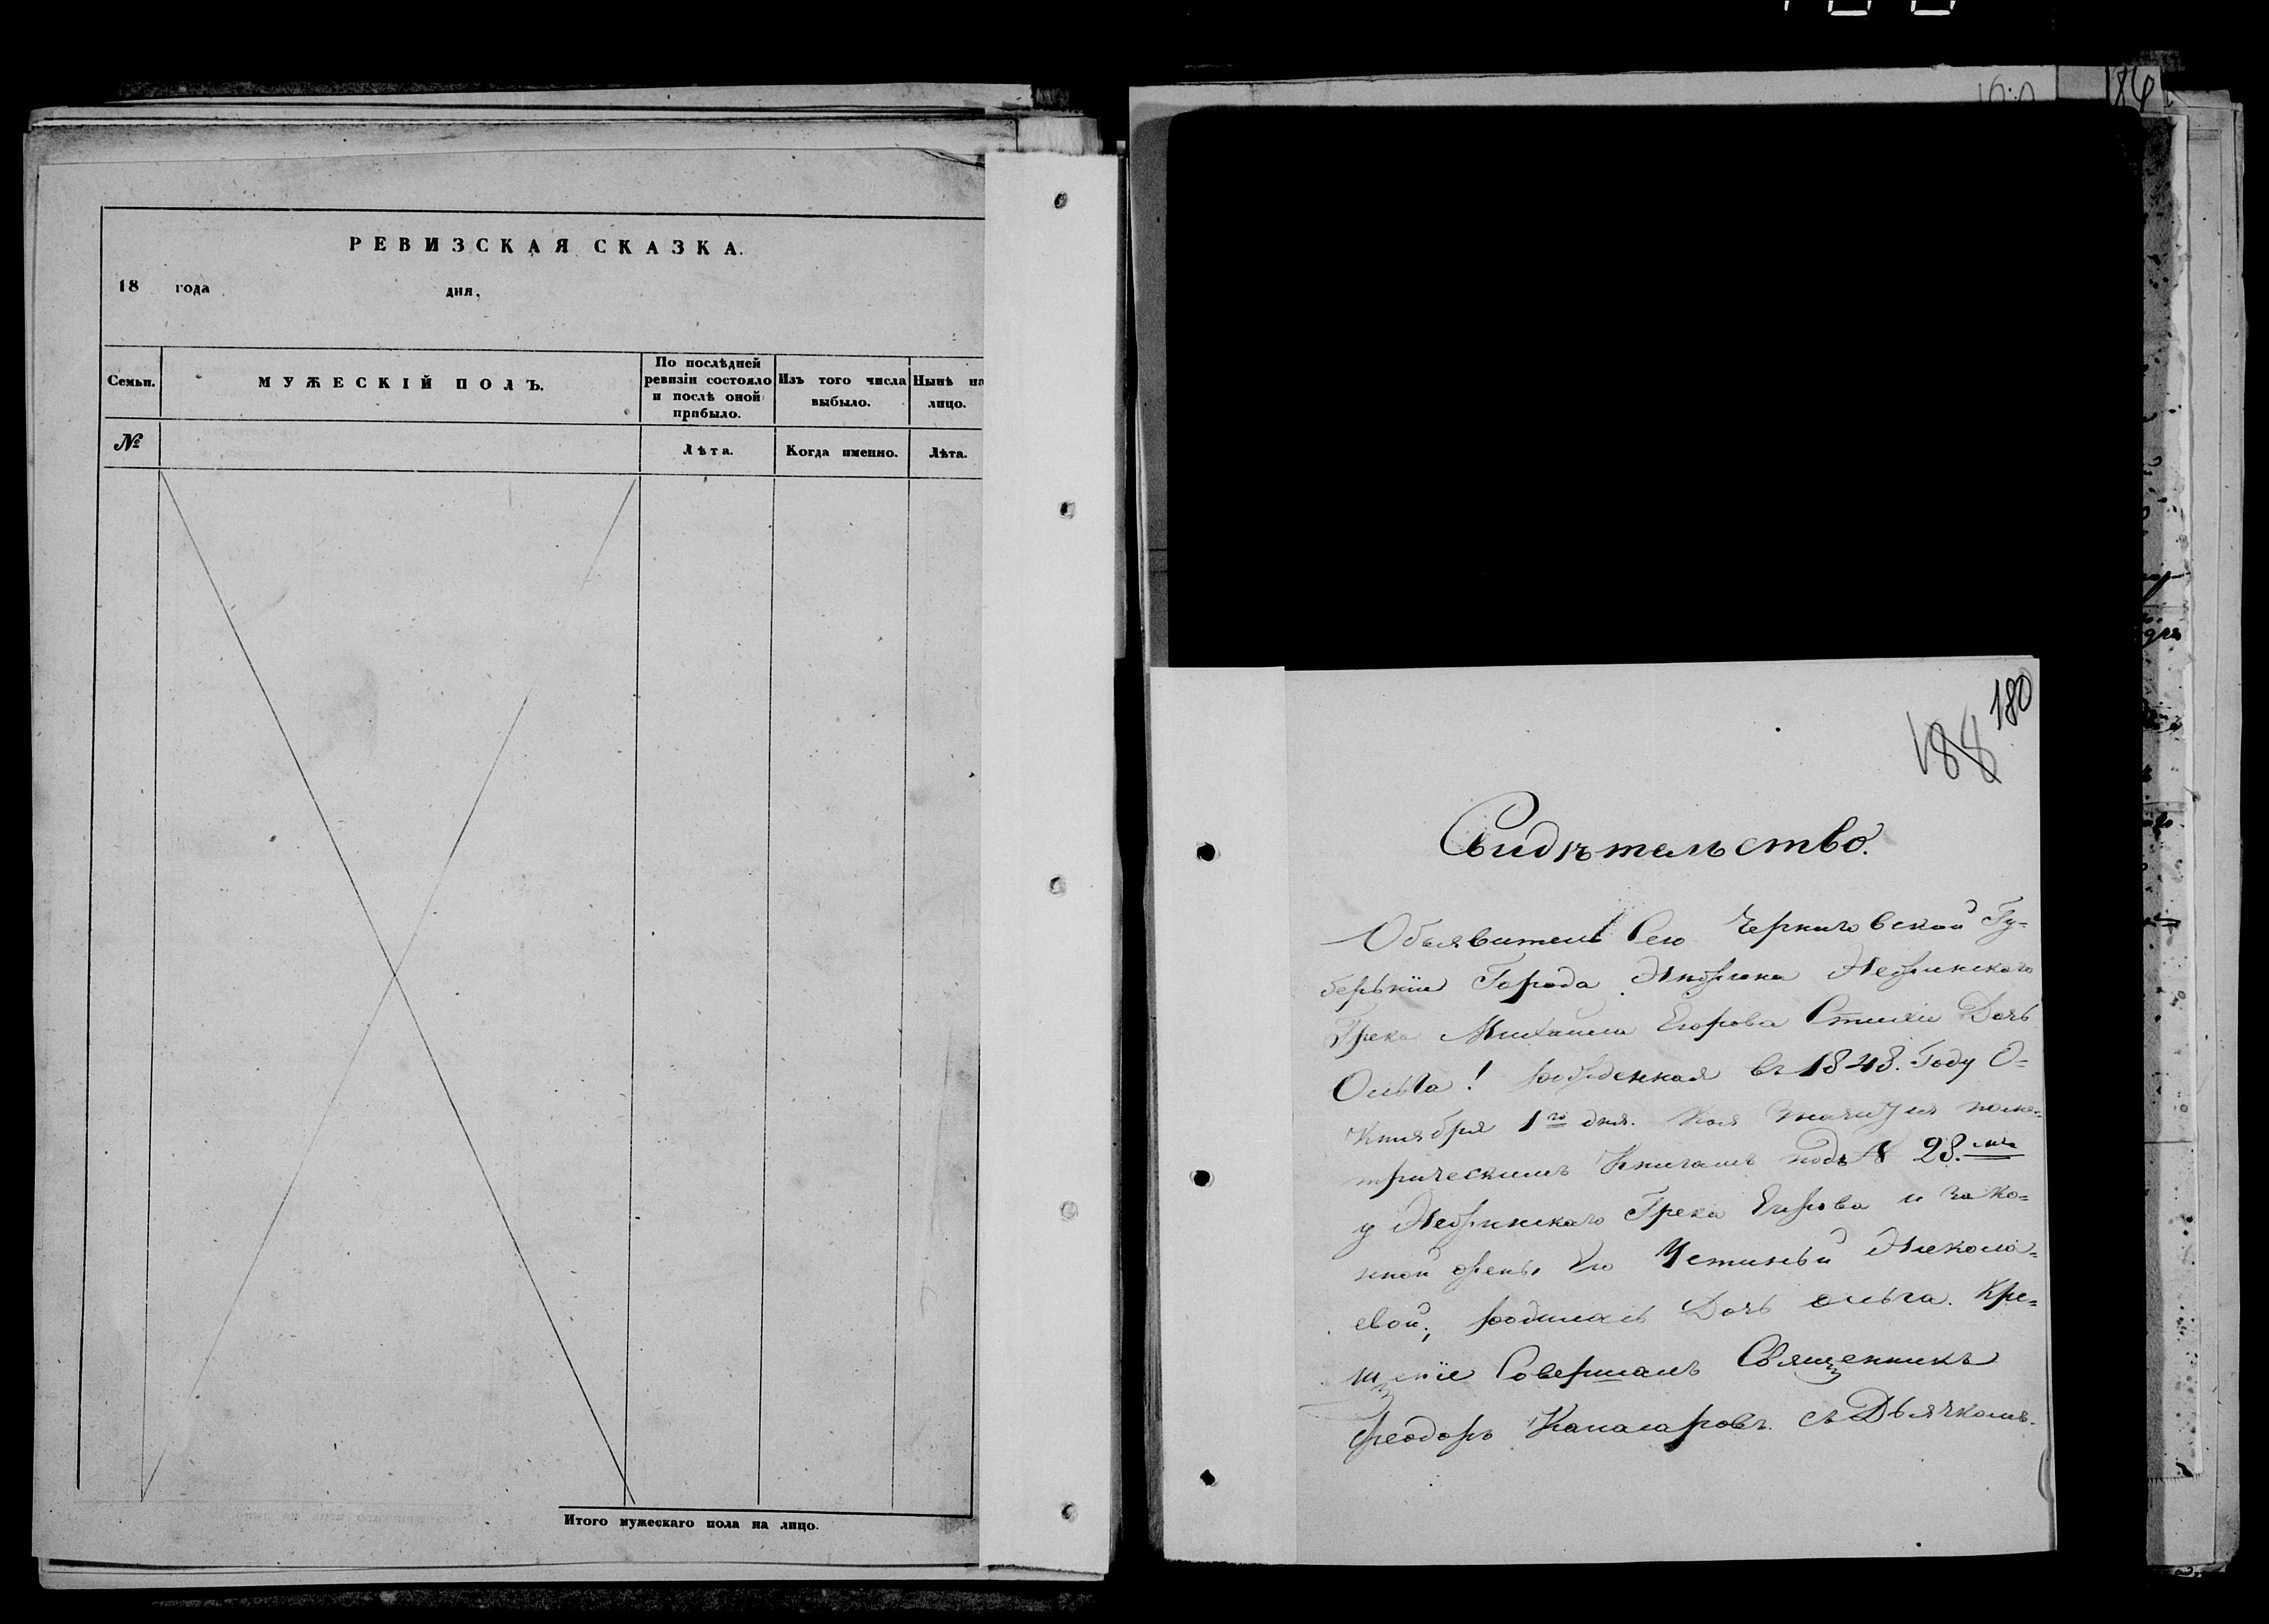 РЕВИЗСКАЯ СКАЗКА.
18 года дня.
Семьи.
МУЖЕСКІЙ ПОЛЪ.
По послѣдней
ревизіи состояло
и послѣ оной
прибыло.
Изъ того числа
выбыло.
Нынѣ на
лицо.
№
Лѣта.
Когда именно.
Лѣта.
Итого мужескаго пола на лицо.
186
180
188
Свидѣтельство.
Объявитель Сего Черниговской Гу-
берьніи Города Нѣжина Нежинскаго
Грека Михаила Егорова Дочь
Ольга! рожденная въ 1848. Году О=
Ктября 1го дня. Коя по
Книгамъ подъ № 28.мъ
у Нежинскаго Грека Егорова и зако=
нной жены Его Устиньи Никола=
евой; родилась Дочь ольга. Кре=
щеніе Совершалъ Священникъ
Феодоръ съ Дьячкомъ.